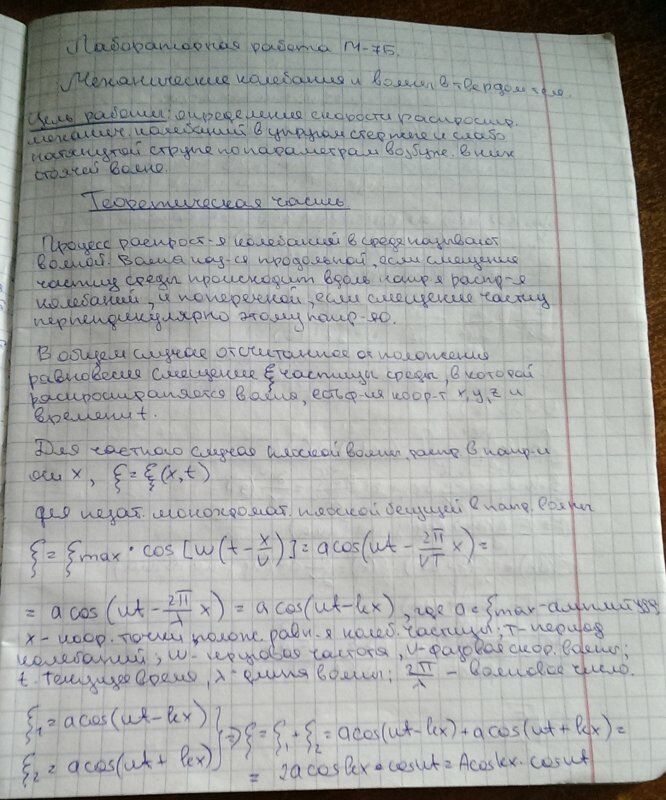 Лабораторная работа М-7Б.
Механические колебания и волны в твердом теле.
Цель работы: определение скорости распростр.
механич. колебаний в упругом стержне и слабо
натянутой струне по параметрам возбужд. в них
стоячей волне.
Теоретическая часть.
Процесс распрост-я колебаний в среде называют
волной. Волна наз-ся продольной, если смещение
частиц среды происходит вдоль напр-я распр-я
колебаний, и поперечной, если смещение частиц
перпендикулярно этому напр-ю.
В общем случае отсчитанное от положения
равновесия смещение ξ частицы среды, в которой
распространяется волна, есть ф-ия коор-т x, y, z и
времени t.
Для частного случая плоской волны, распр. в напр-и
оси x, ξ = ξ(x,t)
для незат. монохромат. плоской бегущей в напр. волны
ξ = ξmax · cos [ω(t - x/υ)] = a cos(ωt - 2π/υT x) =
= a cos(ωt - 2π/λ x) = a cos(ωt - kx), где a = ξmax - амплитуда
x - коор. точки полож. равн-я колеб. частицы; T - период
колебаний; ω - цикловая частота, υ - фазовая скор. волны;
t - текущее время, λ - длина волны; 2π/λ - волновое число.
ξ1 = a cos(ωt - kx) } ⇒ ξ = ξ1 + ξ2 = a cos(ωt - kx) + a cos(ωt + kx) =
ξ2 = a cos(ωt + kx) = 2a cos kx · cos ωt = A cos kx · cos ωt